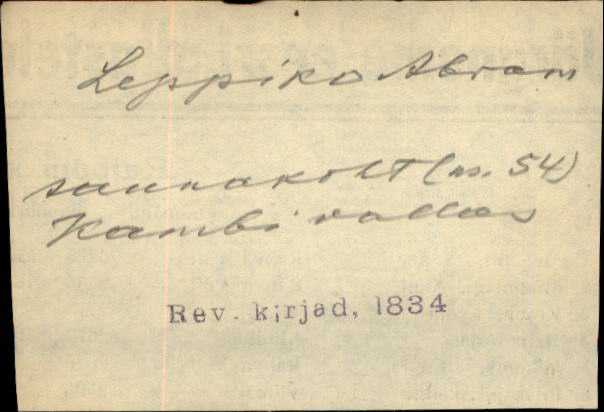 Leppiko Abram
saunakoht (ns. 54)
Kambi vallas
Rev. kirjad, 1834